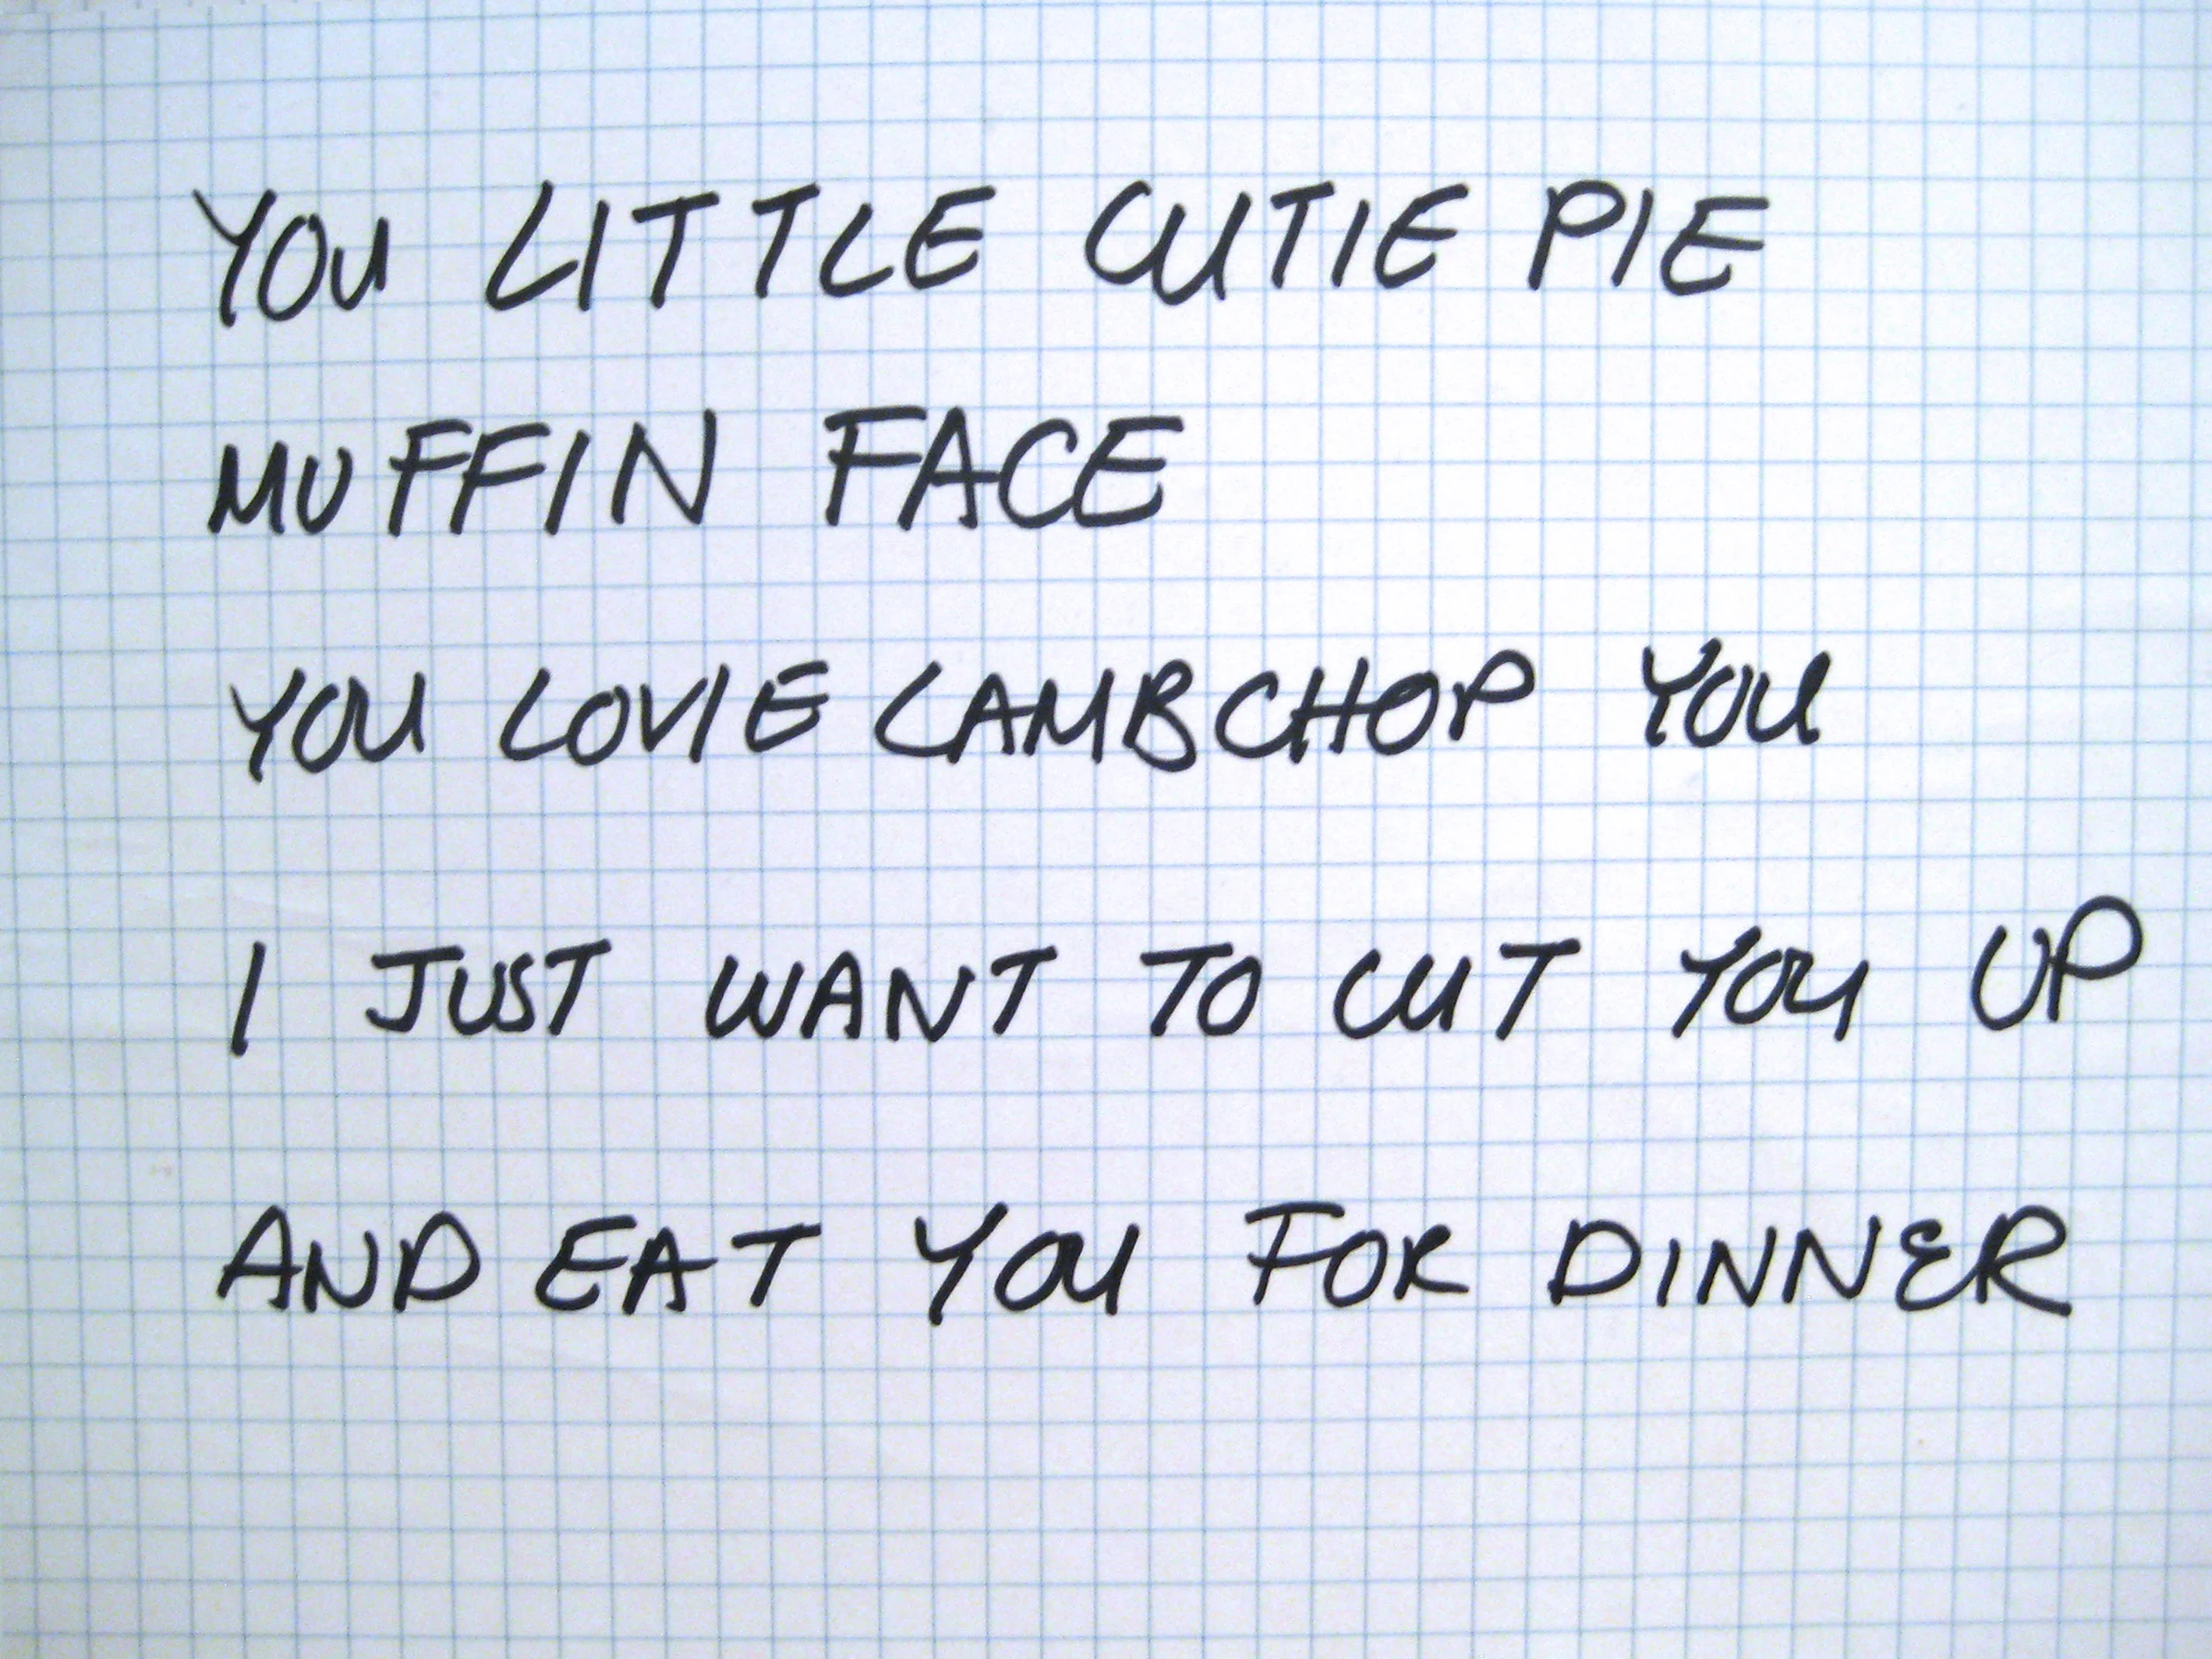 YOU LITTLE CUTIE PIE
MUFFIN FACE
YOU LOVIE LAMBCHOP YOU
I JUST WANT TO CUT YOU UP
AND EAT YOU FOR DINNER